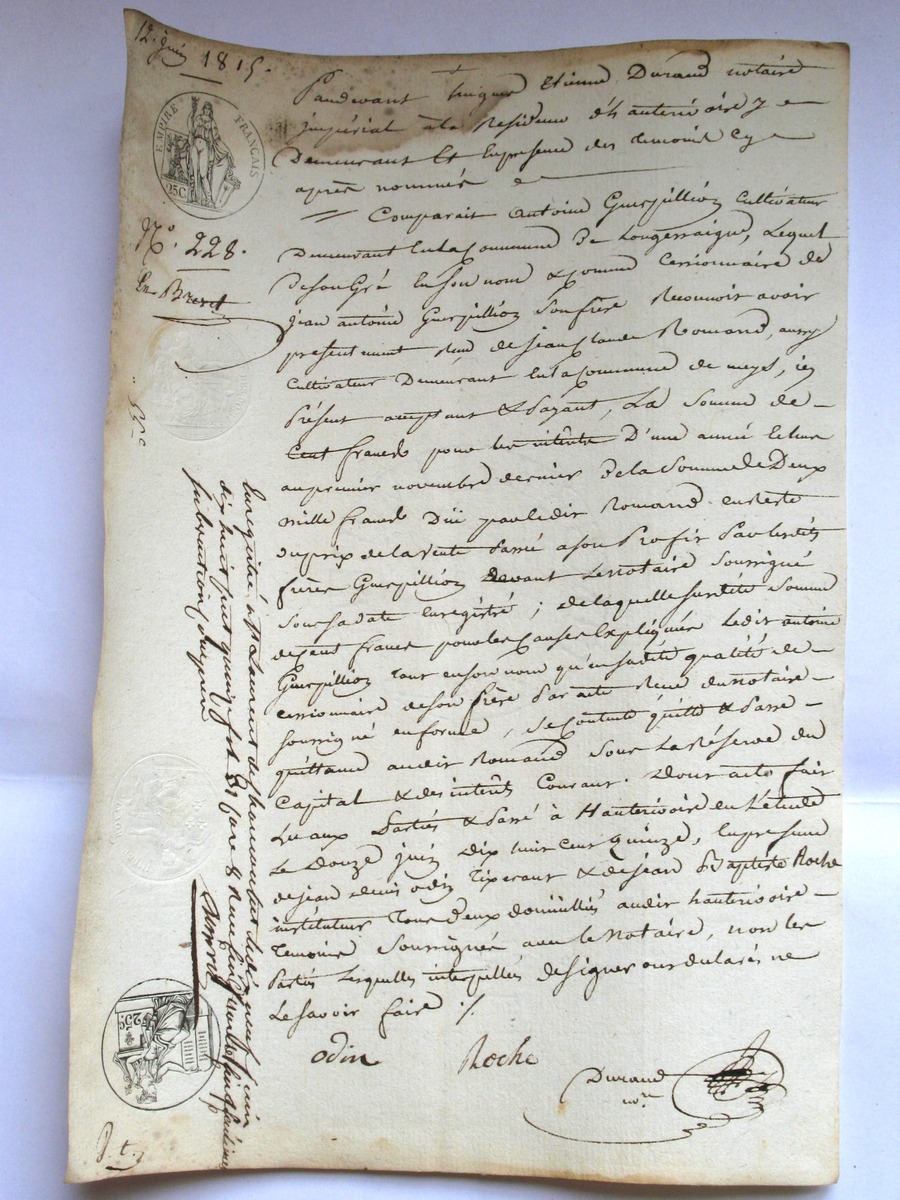 12. juin 1815.
Pardevant Etienne Durand notaire
impérial à la Residence d'hauterivoire y
Demeurant Et En presence des temoins cy
après nommés
Comparait Antoine Guerpillion Cultivateur
Demeurant En la Commune De Longessaigne, Lequel
De son Gré En son nom & comme Cessionnaire de
jean antoine Guerpillion Son frère Reconnoit avoir
presentement Reçu de jean Claude Romand, aussy
Cultivateur Demeurant En la Commune de meys, icy
Présent acceptant & Payant, La Somme de
Cent francs pour les intérêts D'une année Echue
au premier novembre dernier De la Somme de Deux
mille francs Dûe par ledit Romand en reste
du prix de la Vente Passé a son Profit Par lesdits
frères Guerpillion Devant Le notaire Soussigné
Sous sa date Enregistré ; de laquelle susdite Somme
de cent francs pour les Causes Expliquées Ledit antoine
Guerpillion Tant en son nom qu'en sadite qualité de
cessionnaire de son frère Par acte Reçu du notaire
soussigné en forme, se Contente quitte & Passe
quittance audit Romand Sous La Réserve du
Capital & des intérêts Courant. Dont acte fait
Lu aux Parties & Passé à Hauterivoire En L'étude
Le Douze juin Dix huit Cent Quinze, En presence
de jean denis odin Tixerant & de jean Baptiste Roche
instituteur Tous Deux domiciliés audit hauterivoire
Temoins Soussignés avec le Notaire, non les
Parties Lesquelles interpellées de signer ont declarés ne
Le savoir faire ./.
odin Roche
Durand
nore
EMPIRE FRANÇAIS
25C
No. 228.
En Brevet
Enregistré à St Laurent de chamousset le dix neuf juin
dix huit cent quinze fol
subvention comprise
25C